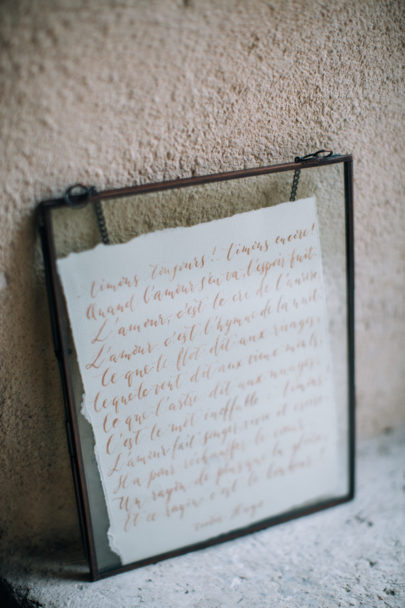 Aimons toujours ! Aimons encore !
Quand l'amour s'en va, l'espoir fuit.
L'amour, c'est le cri de l'aurore,
L'amour c'est l'hymne de la nuit.
Ce que le flot dit aux rivages,
Ce que le vent dit aux vieux monts,
Ce que l'astre dit aux nuages,
C'est le mot ineffable : Aimons !
L'amour fait songer, vivre et croire.
Il a pour réchauffer le coeur
Un rayon de plus que la gloire,
Et ce rayon c'est le bonheur !
Victor Hugo